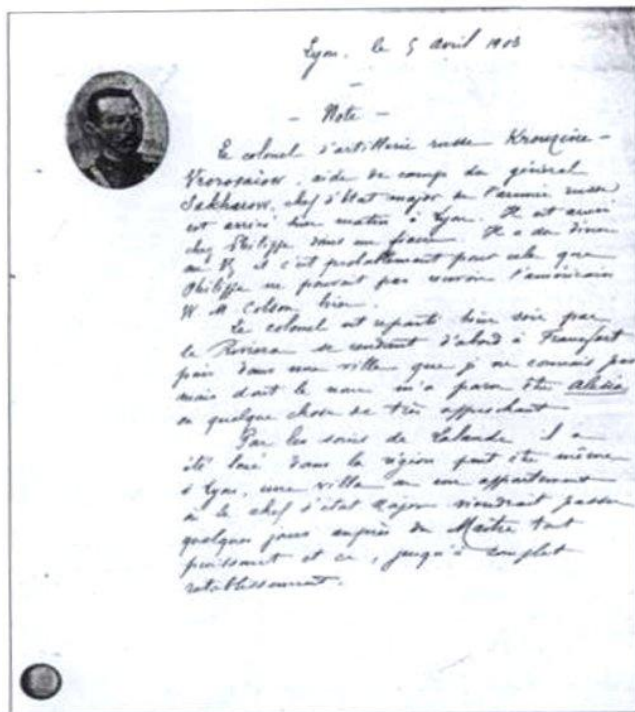 Lyon, le 5 avril 1903
- Note -
Le colonel d'artillerie russe
aide de camp du général
Sakharow, chef d'état major de l'armée russe
est arrivé hier matin à Lyon. Il est arrivé
chez Philippe dans un fiacre. Il a du diner
au et c'est probablement pour cela que
Philippe ne pouvait pas recevoir l'américain
W. M. Colson hier.
Le colonel est reparti hier soir par
la Riviera se rendant d'abord à Francfort
puis dans une ville que je ne connais pas
mais dont le nom m'a paru être Alexia
ou quelque chose de très approchant
Par les soins de Lalande il a
été loué dans la région peut être même
à Lyon, une villa ou un appartement
où le chef d'état major viendrait passer
quelques jours auprès du Maître tout
puissant et ce, jusqu'à complet
rétablissement.